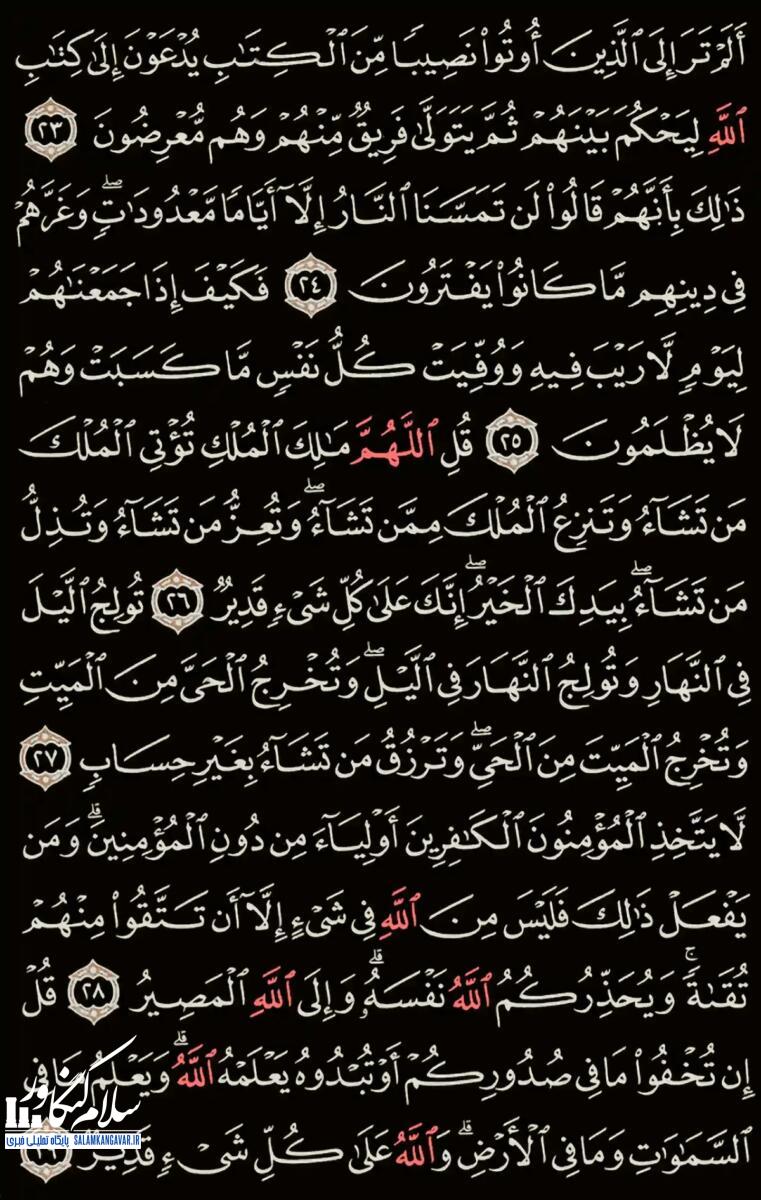 أَلَمْ تَرَ إِلَى ٱلَّذِينَ أُوتُوا۟ نَصِيبًا مِّنَ ٱلْكِتَـٰبِ يُدْعَوْنَ إِلَىٰ كِتَـٰبِ
ٱللَّهِ لِيَحْكُمَ بَيْنَهُمْ ثُمَّ يَتَوَلَّىٰ فَرِيقٌ مِّنْهُمْ وَهُم مُّعْرِضُونَ ٢٣
ذَٰلِكَ بِأَنَّهُمْ قَالُوا۟ لَن تَمَسَّنَا ٱلنَّارُ إِلَّآ أَيَّامًا مَّعْدُودَٰتٍ ۖ وَغَرَّهُمْ
فِى دِينِهِم مَّا كَانُوا۟ يَفْتَرُونَ ٢٤ فَكَيْفَ إِذَا جَمَعْنَـٰهُمْ
لِيَوْمٍ لَّا رَيْبَ فِيهِ وَوُفِّيَتْ كُلُّ نَفْسٍ مَّا كَسَبَتْ وَهُمْ
لَا يُظْلَمُونَ ٢٥ قُلِ ٱللَّهُمَّ مَـٰلِكَ ٱلْمُلْكِ تُؤْتِى ٱلْمُلْكَ
مَن تَشَآءُ وَتَنزِعُ ٱلْمُلْكَ مِمَّن تَشَآءُ ۖ وَتُعِزُّ مَن تَشَآءُ وَتُذِلُّ
مَن تَشَآءُ ۖ بِيَدِكَ ٱلْخَيْرُ ۖ إِنَّكَ عَلَىٰ كُلِّ شَىْءٍ قَدِيرٌ ٢٦ تُولِجُ ٱلَّيْلَ
فِى ٱلنَّهَارِ وَتُولِجُ ٱلنَّهَارَ فِى ٱلَّيْلِ ۖ وَتُخْرِجُ ٱلْحَىَّ مِنَ ٱلْمَيِّتِ
وَتُخْرِجُ ٱلْمَيِّتَ مِنَ ٱلْحَىِّ ۖ وَتَرْزُقُ مَن تَشَآءُ بِغَيْرِ حِسَابٍ ٢٧
لَّا يَتَّخِذِ ٱلْمُؤْمِنُونَ ٱلْكَـٰفِرِينَ أَوْلِيَآءَ مِن دُونِ ٱلْمُؤْمِنِينَ ۖ وَمَن
يَفْعَلْ ذَٰلِكَ فَلَيْسَ مِنَ ٱللَّهِ فِى شَىْءٍ إِلَّآ أَن تَتَّقُوا۟ مِنْهُمْ
تُقَىٰةً ۗ وَيُحَذِّرُكُمُ ٱللَّهُ نَفْسَهُۥ ۗ وَإِلَى ٱللَّهِ ٱلْمَصِيرُ ٢٨ قُلْ
إِن تُخْفُوا۟ مَا فِى صُدُورِكُمْ أَوْ تُبْدُوهُ يَعْلَمْهُ ٱللَّهُ ۗ وَيَعْلَمُ مَا فِى
ٱلسَّمَـٰوَٰتِ وَمَا فِى ٱلْأَرْضِ ۗ وَٱللَّهُ عَلَىٰ كُلِّ شَىْءٍ قَدِيرٌ
سلام کنگاور
پایگاه تحلیلی خبری SALAMKANGAVAR.IR